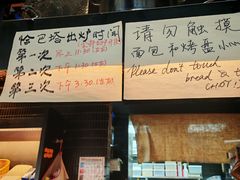 恰巴塔出炉时间
第一次 上午11:30(左右)
第二次 下午1:30(左右)
第三次 下午3:30(左右)
请勿触摸
面包和烤盘小心
Please don't touch
bread & t
(HOT!)